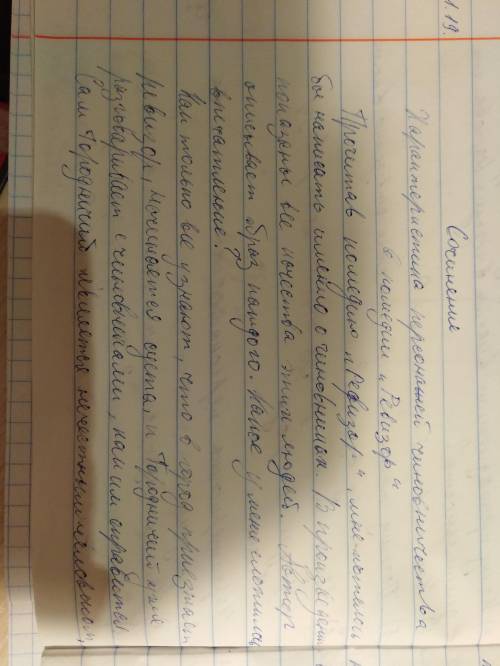 1.19.
Сочинение
Характеристика персонажей чиновничества
в комедии „Ревизор"
Прочитав комедию „Ревизор", мне хотелось
бы написать именно о чиновниках. В произведении
показаны все качества этих людей. Автор
описывает образ каждого. Какое у меня сложилось
впечатление?
Как только все узнают, что в город приезжает
ревизор, начинается суета, и Городничий
разговаривает с чиновниками, как им справиться
Сам Городничий является нечестным человеком,